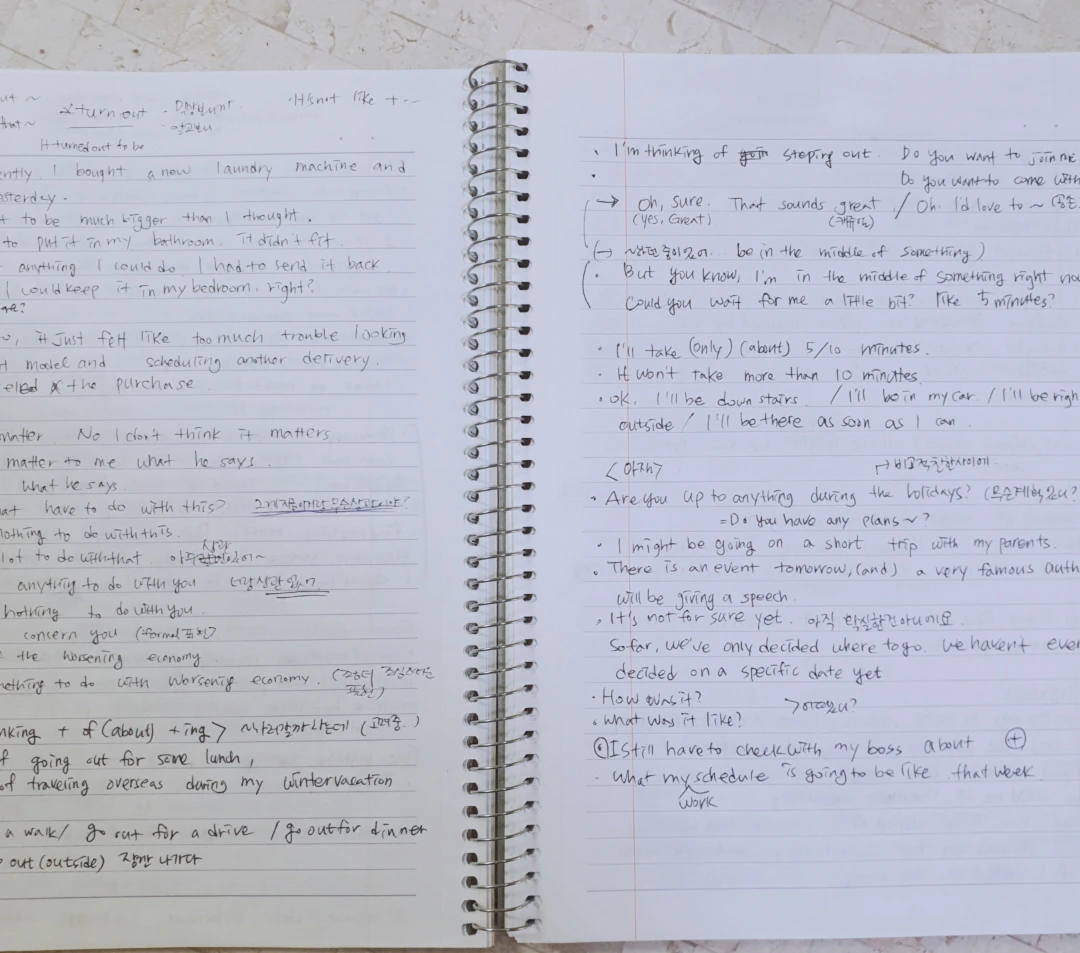 turn out - 막상보니까
- 알고보니
·It's not like + ~
that~
It turned out to be
I bought a new laundry machine and
to be much bigger than I thought.
to put it in my bathroom. it didn't fit.
anything I could do. I had to send it back
I could keep it in my bedroom. right?
it just felt like too much trouble looking
model and scheduling another delivery.
the purchase.
matter. No I don't think it matters
matter to me what he says.
what he says.
have to do with this? 그게 지금 이거랑 무슨상관이야?
nothing to do with this.
lot to do with that.
상관
anything to do with you 너랑 상관없어
nothing to do with you.
concern you (formal 표현)
the worsening economy
to do with worsenig economy.
+ of (about) +ing > ~하러갈까 하는데 (고려중)
going out for some lunch,
of traveling overseas during my winter vacation
a walk/ go out for a drive / go out for dinner
out (outside) 잠깐 나가다
· I'm thinking of steping out. Do you want to join me
· Do you want to come with
→ Oh, sure. That sounds great. / Oh. I'd love to ~
(yes, Great) (캐쥬얼)
be in the middle of something)
· But you know, I'm in the middle of something right
Could you wait for me a little bit? like 5 minutes?
· I'll take (only) (about) 5/10 minutes.
· It won't take more than 10 minutes.
· ok. I'll be down stairs. / I'll be in my car. / I'll be
outside / I'll be there as soon as I can.
→ 비교적 친한사이에.
· Are you up to anything during the holidays? (무슨계획있니?
= Do you have any plans ~?
· I might be going on a short trip with my parents.
· There is an event tomorrow, (and) a very famous
will be giving a speech.
· It's not for sure yet. 아직 확실한건아니에요.
So far, we've only decided where to go. we haven't even
decided on a specific date yet
· How was it?
> 어땠니?
· what was it like?
I still have to check with my boss about +
- what my schedule is going to be like that week
work